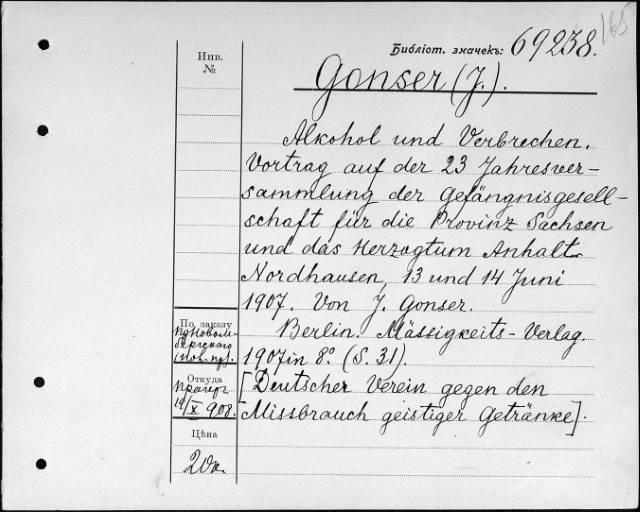 165
Библіот. значекъ: 69238.
Инв.
№
Gonser (J.).
Alkohol und Verbrechen.
Vortrag auf der 23 Jahresver-
sammlung der Gefängnisgesell-
schaft für die Provinz Sachsen
und das Herzogtum Anhalt
Nordhausen, 13 und 14 Juni
1907. Von J. Gonser.
Berlin. Mässigkeits-Verlag.
1907 in 8º. (S. 31).
[Deutscher Verein gegen den
Missbrauch geistiger Getränke].
По заказу
Откуда
19/X 908.
Цѣна